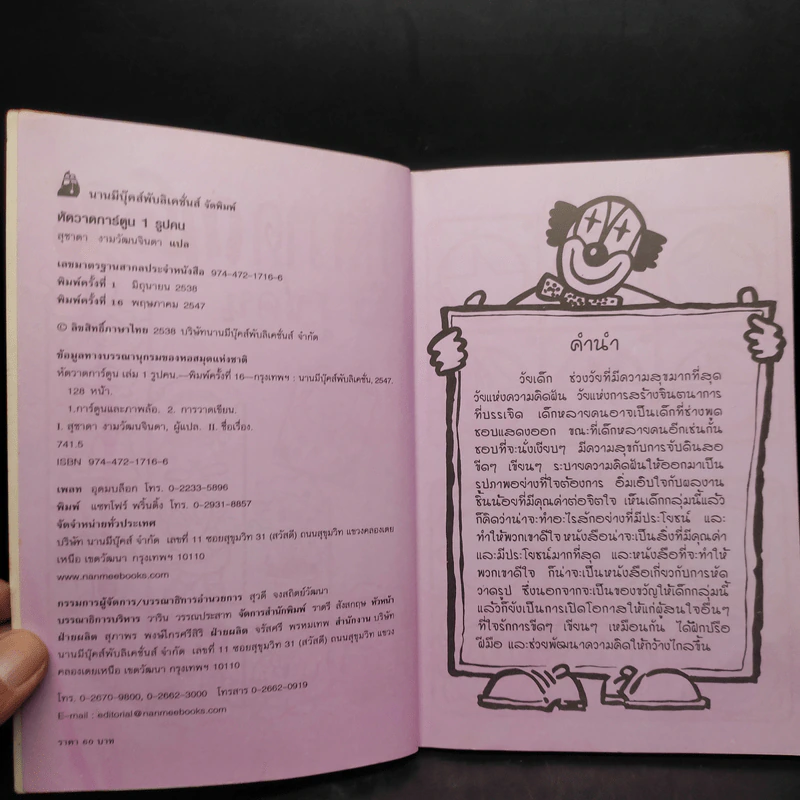 นานมีบุ๊คส์พับลิเคชั่นส์ จัดพิมพ์
หัดวาดการ์ตูน 1 รูปคน
สุชาดา งามวัฒนจินดา แปล
เลขมาตรฐานสากลประจำหนังสือ 974-472-1716-6
พิมพ์ครั้งที่ 1 มิถุนายน 2538
พิมพ์ครั้งที่ 16 พฤษภาคม 2547
© ลิขสิทธิ์ภาษาไทย 2538 บริษัทนานมีบุ๊คส์พับลิเคชั่นส์ จำกัด
ข้อมูลทางบรรณานุกรมของหอสมุดแห่งชาติ
หัดวาดการ์ตูน เล่ม 1 รูปคน.—พิมพ์ครั้งที่ 16—กรุงเทพฯ : นานมีบุ๊คส์พับลิเคชั่น, 2547.
128 หน้า.
1.การ์ตูนและภาพล้อ. 2. การวาดเขียน.
I. สุชาดา งามวัฒนจินดา, ผู้แปล. II. ชื่อเรื่อง.
741.5
ISBN 974-472-1716-6
เพลท อุดมบล็อก โทร. 0-2233-5896
พิมพ์ แซทโฟร์ พริ้นติ้ง โทร. 0-2931-8857
จัดจำหน่ายทั่วประเทศ
บริษัท นานมีบุ๊คส์ จำกัด เลขที่ 11 ซอยสุขุมวิท 31 (สวัสดี) ถนนสุขุมวิท แขวงคลองเตย
เหนือ เขตวัฒนา กรุงเทพฯ 10110
www.nanmeebooks.com
กรรมการผู้จัดการ/บรรณาธิการอำนวยการ สุวดี จงสถิตย์วัฒนา
บรรณาธิการบริหาร วาริน วรรณประสาท จัดการสำนักพิมพ์ ราตรี สังสกฤษ หัวหน้า
ฝ่ายผลิต สุภาพร พงษ์ไกรศรีสิริ ฝ่ายผลิต จรัสศรี พรหมเทพ สำนักงาน บริษัท
นานมีบุ๊คส์พับลิเคชั่นส์ จำกัด เลขที่ 11 ซอยสุขุมวิท 31 (สวัสดี) ถนนสุขุมวิท แขวง
คลองเตยเหนือ เขตวัฒนา กรุงเทพฯ 10110
โทร. 0-2670-9800, 0-2662-3000 โทรสาร 0-2662-0919
E-mail : editorial@nanmeebooks.com
ราคา 60 บาท
คำนำ
วัยเด็ก ช่วงวัยที่มีความสุขมากที่สุด
วัยแห่งความคิดฝัน วัยแห่งการสร้างจินตนาการ
ที่บรรเจิด เด็กหลายคนอาจเป็นเด็กที่ช่างพูด
ชอบแสดงออก ขณะที่เด็กหลายคนอีกเช่นกัน
ชอบที่จะนั่งเงียบๆ มีความสุขกับการจับดินสอ
ขีดๆ เขียนๆ ระบายความคิดฝันให้ออกมาเป็น
รูปภาพอย่างที่ใจต้องการ อิ่มเอิบใจกับผลงาน
ชิ้นน้อยที่มีคุณค่าต่อจิตใจ เห็นเด็กกลุ่มนี้แล้ว
ก็คิดว่าน่าจะทำอะไรสักอย่างที่มีประโยชน์ และ
ทำให้พวกเขาดีใจ หนังสือน่าจะเป็นสิ่งที่มีคุณค่า
และมีประโยชน์มากที่สุด และหนังสือที่จะทำให้
พวกเขาดีใจ ก็น่าจะเป็นหนังสือเกี่ยวกับการหัด
วาดรูป ซึ่งนอกจากจะเป็นของขวัญให้เด็กกลุ่มนี้
แล้วก็ยังเป็นการเปิดโอกาสให้แก่ผู้สนใจอื่นๆ
ที่ใจรักการขีดๆ เขียนๆ เหมือนกัน ได้ฝึกปรือ
ฝีมือ และช่วยพัฒนาความคิดให้กว้างไกลขึ้น